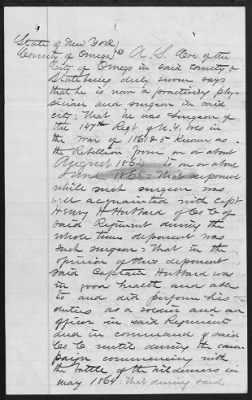 State of New York
County of Oswego } ss A. S. Coe of the
City of Oswego in said county &
State being duly sworn says
that he is now a practicing phy-
sician and surgeon in said
city: That he was Surgeon of
the 147th Regt of N.Y. Vols in
the War of 1861 & 5 known as
the Rebellion from on or about
August 186 to on or about
June 1865: That deponent
while such surgeon was
well acquainted with Capt
Henry H Hubbard of Co C of
said Regiment during the
whole time deponent was
such surgeon: That in the
opinion of this deponent
said Captain Hubbard was
in good health and able
to and did perform his
duties as a soldier and an
officer in said Regiment
and in command of said
Co C until during the cam-
paign commencing with
the battle of the Wilderness in
May 1864: that during said